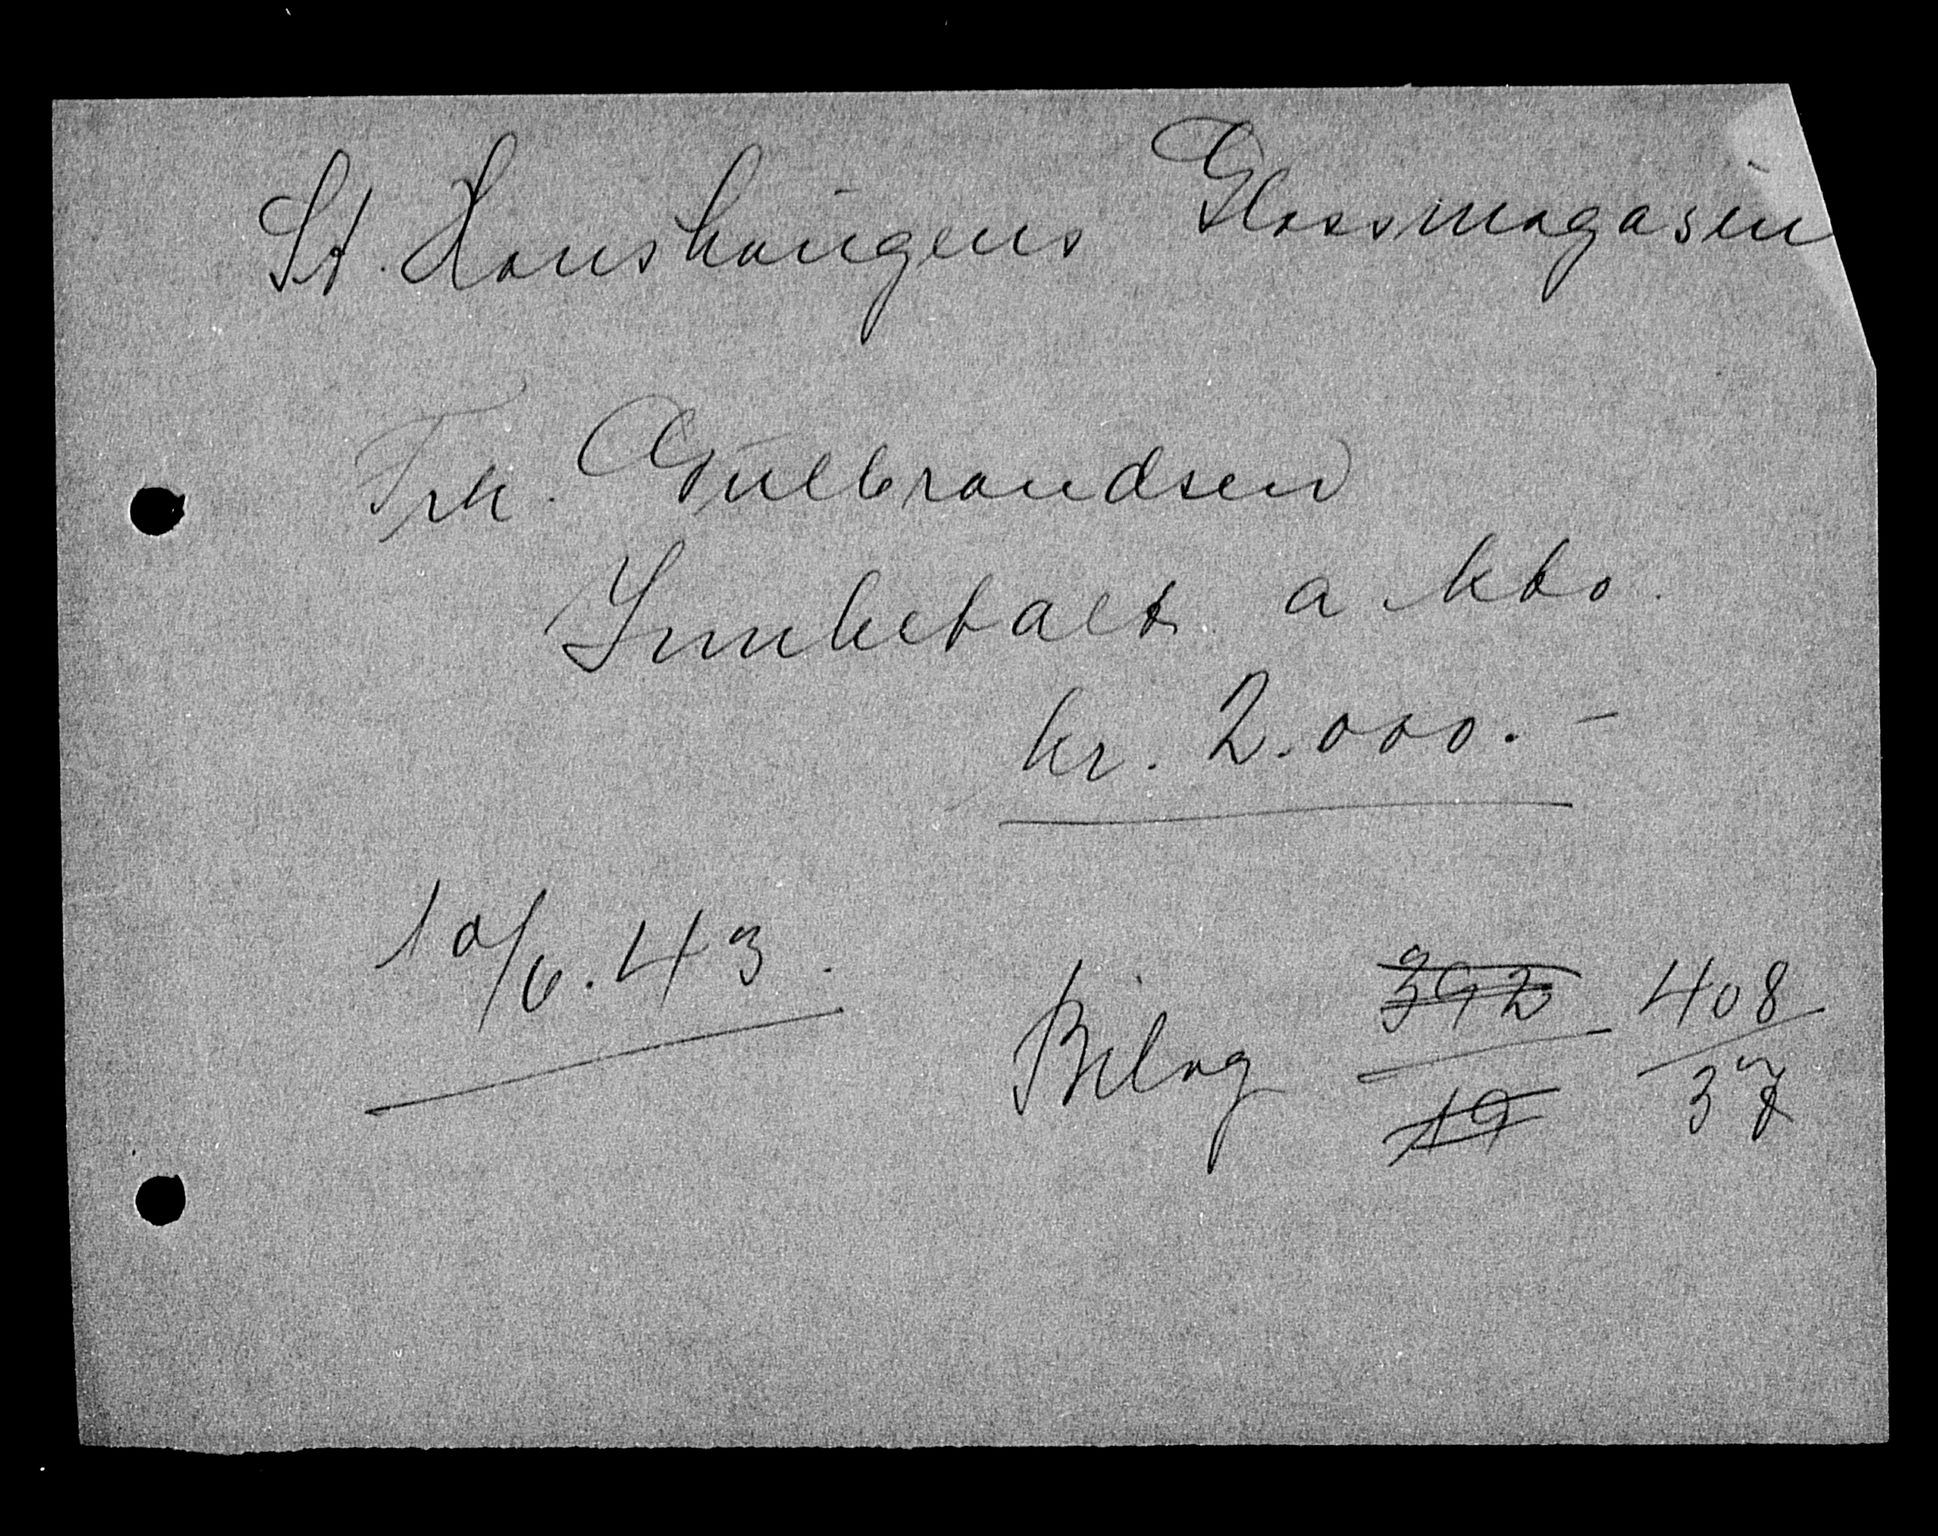 St. Hanshaugens Glassmagasin
Frk. Gulbrandsen
Innbetalt a kto.
kr. 2.000.-
10/6.43.
Bilag 392/19 408/37